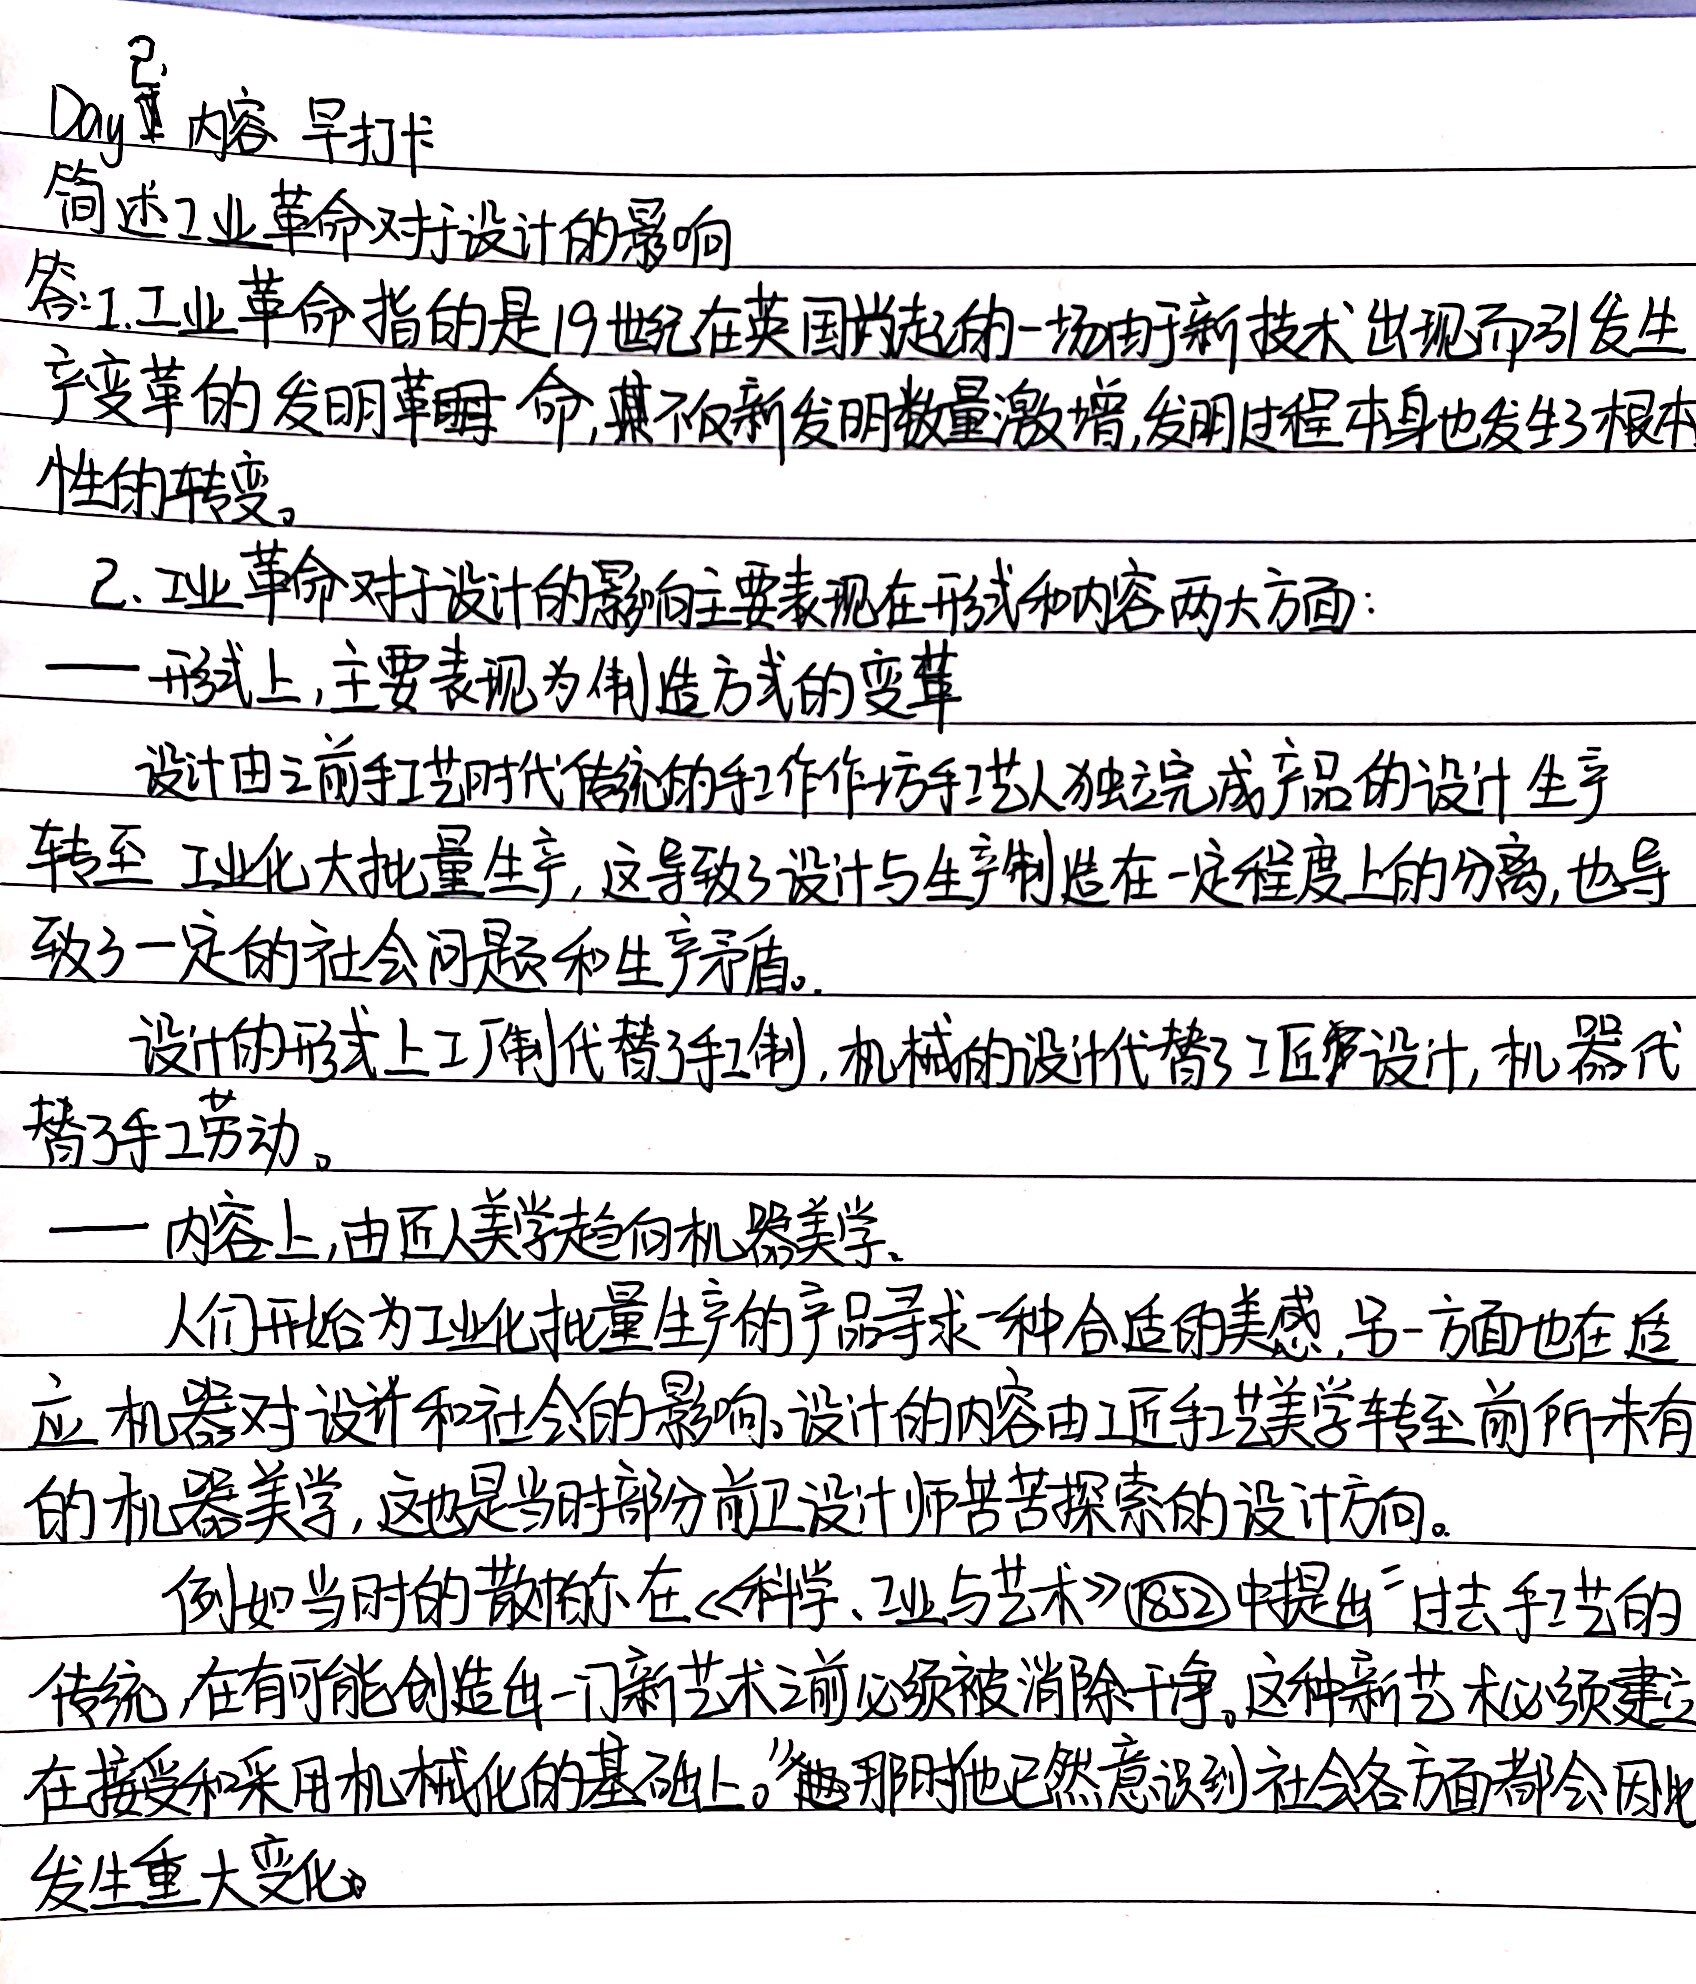 Day 2. 内容 早打卡
简述工业革命对于设计的影响
答:1.工业革命指的是19世纪在英国首起的一场由于新技术出现而引发生
产变革的发明革命,不仅新发明数量激增,发明过程本身也发生了根本
性的转变。
2.工业革命对于设计的影响主要表现在形式和内容两大方面:
——形式上,主要表现为制造方式的变革
设计由之前手工艺时代传统的手工作作坊手工艺人独立完成产品的设计生产
转至 工业化大批量生产,这导致了设计与生产制造在一定程度上的分离,也导
致了一定的社会问题和生产矛盾。
设计的形式上工厂制代替了手工制,机械的设计代替了工匠设计,机器代
替了手工劳动。
——内容上,由匠人美学趋向机器美学。
人们开始为工业化批量生产的产品寻求一种合适的美感,另一方面也在适
应机器对设计和社会的影响。设计的内容由工匠手工艺美学转至前所未有
的机器美学,这也是当时部分前卫设计师苦苦探索的设计方向。
例如当时的散帕尔在《科学、工业与艺术》(1852)中提出“过去手工艺的
传统,在有可能创造出一门新艺术之前必须被消除干净。这种新艺术必须建立
在接受和采用机械化的基础上。”那时他已然意识到社会各方面都会因此
发生重大变化。